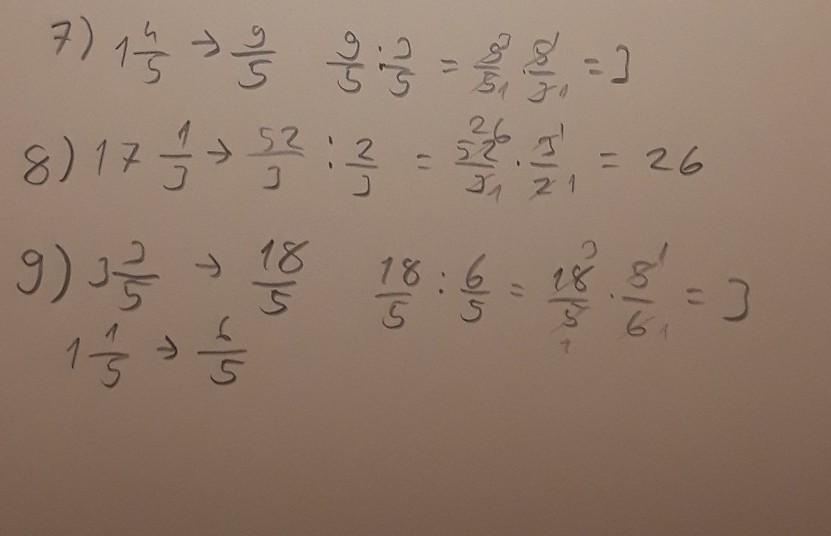 7) 1 4/5 → 9/5 9/5 : 3/5 = 9³/5₁ · 5¹/3₁ = 3
8) 17 1/3 → 52/3 : 2/3 = 52²⁶/3₁ · 3¹/2₁ = 26
9) 3 3/5 → 18/5 18/5 : 6/5 = 18³/5₁ · 5¹/6₁ = 3
1 1/5 → 6/5